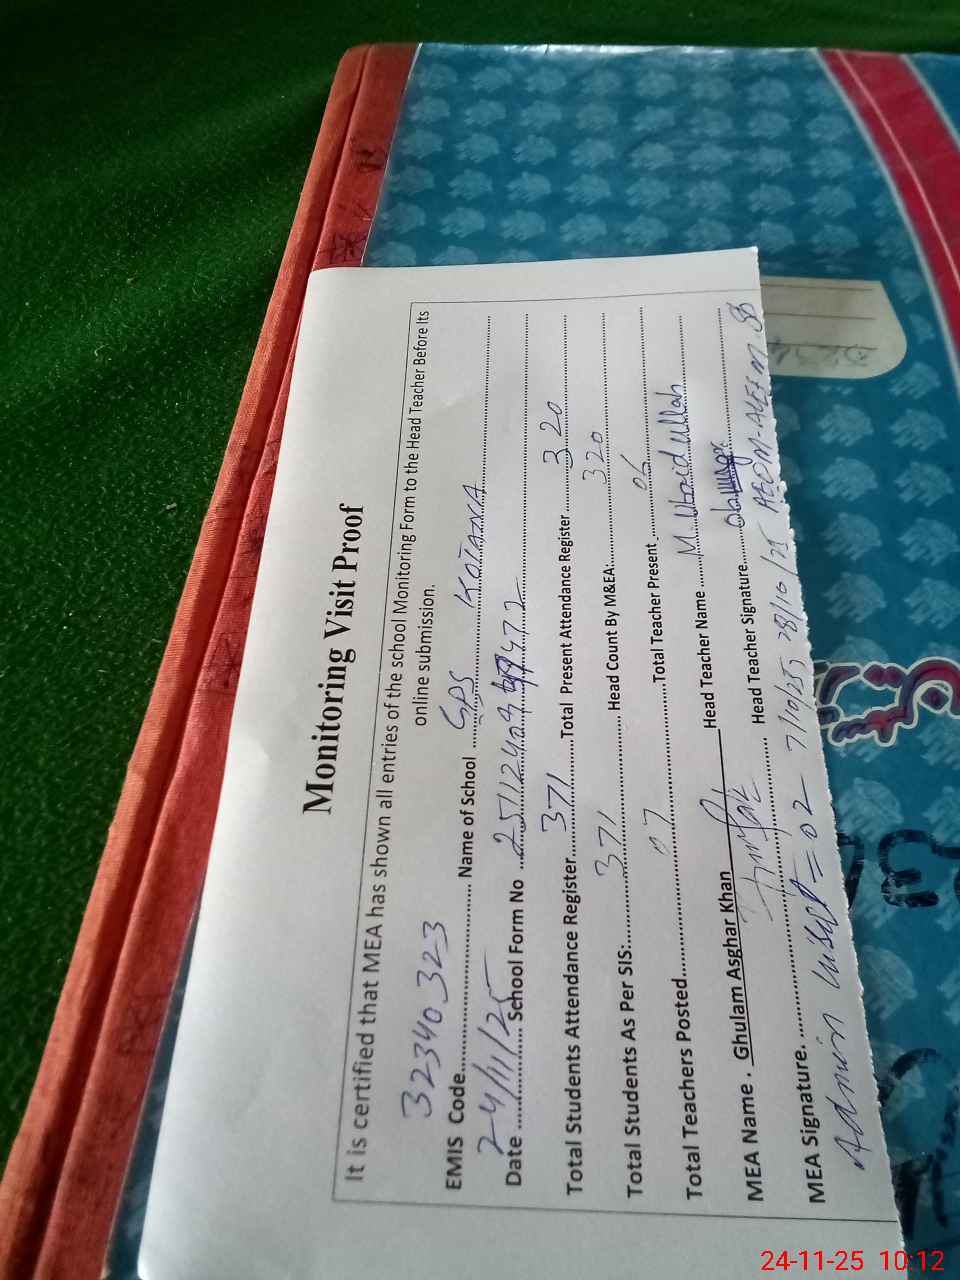 Monitoring Visit Proof
It is certified that MEA has shown all entries of the school Monitoring Form to the Head Teacher Before Its
online submission.
EMIS Code 32340323 Name of School GPS KOTANA
Date 24/11/25 School Form No
Total Students Attendance Register 371 Total Present Attendance Register 320
Total Students As Per SIS: 371 Head Count By M&EA: 320
Total Teachers Posted 07 Total Teacher Present 06
MEA Name . Ghulam Asghar Khan Head Teacher Name M. Ubaidullah
MEA Signature. Head Teacher Signature
Admin = 02 7/10/25, 28/10/25 AEOM-ALEEM
24-11-25 10:12